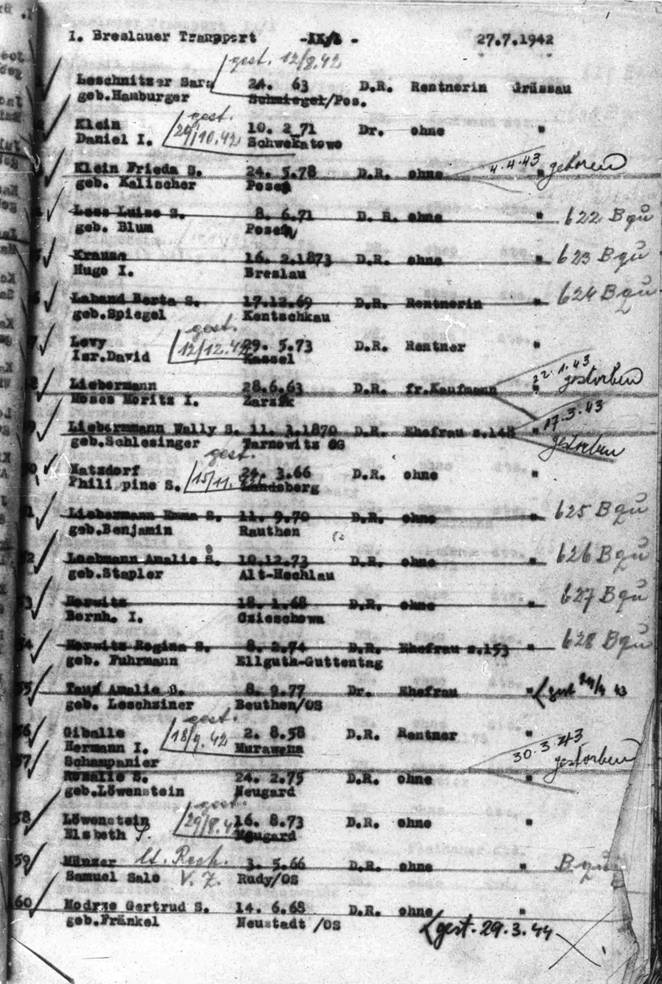 I. Breslauer Transport -IX/2 - 27.7.1942
gest. 12/8.42
Leschnitzer Sara 24. 63 D.R. Rentnerin Grüssau
geb.Hamburger Schmiegel/Pos.
gest.
Klein 10. 2 71 Dr. ohne "
Daniel I. 24/10.42 Schwekatowo
Klein Frieda S. 24. 5.78 D.R. ohne " 4.4.43
geb. Kalischer Posen
Luise S. 8. 6.71 D.R. ohne " 622 Bqu
geb. Blum Posen
Krause 16. 2.1873 D.R. ohne " 623 Bqu
Hugo I. Breslau
Laband Berta S. 17.12.69 D.R. Rentnerin " 624 Bqu
geb.Spiegel Kentschkau
gest.
Levy 29. 5.73 D.R. Rentner "
Isr.David 12/12.42 Kassel
48 Liebermann 28.6.63 D.R. fr.Kaufmann " 22.1.43 gestorben
Moses Moritz I.
17.3.43
49 Liebermann Wally S. 11. 3.1870 D.R. Ehefrau s.148 " gestorben
geb.Schlesinger Tarnowitz OS
gest.
50 Natsdorf 24. 3.66 D.R. ohne "
Philippine S. 15/11. Landsberg
51 Liebermann Emma S. 11. 9.70 D.R. ohne " 625 Bqu
geb.Benjamin Rauthen
52 Loebmann Amalie S. 10.12.73 D.R. ohne " 626 Bqu
geb.Stapler Alt-Hechlau
53 Horwitz 18. 1.68 D.R. ohne " 627 Bqu
Bernh. I.
54 Horwitz Regina S. 8. 2.74 D.R. Ehefrau s.153 " 628 Bqu
geb. Fuhrmann Ellguth-Guttentag
55 Amalie S. 8. 9.77 Dr. Ehefrau " gest 43
geb. Leschziner Beuthen/OS
gest.
56 Giballe 2. 8.58 D.R. Rentner "
Hermann I. 18/9.42 Murawana
30.3.43
57 Schampanier gestorben
Rosalie S. 24. 2.75 D.R. ohne "
geb.Löwenstein Neugard
gest.
58 Löwenstein 16. 8.73 D.R. ohne "
Elsbeth S. 29/8.42 Neugard
59 Münzer lt. Rech. 3. 5.66 D.R. ohne " Bqu
Samuel Salo V. Z. Rudy/OS
60 Modrze Gertrud S. 14. 6.68 D.R. ohne
geb.Fränkel Neustadt /OS gest. 29.3.44